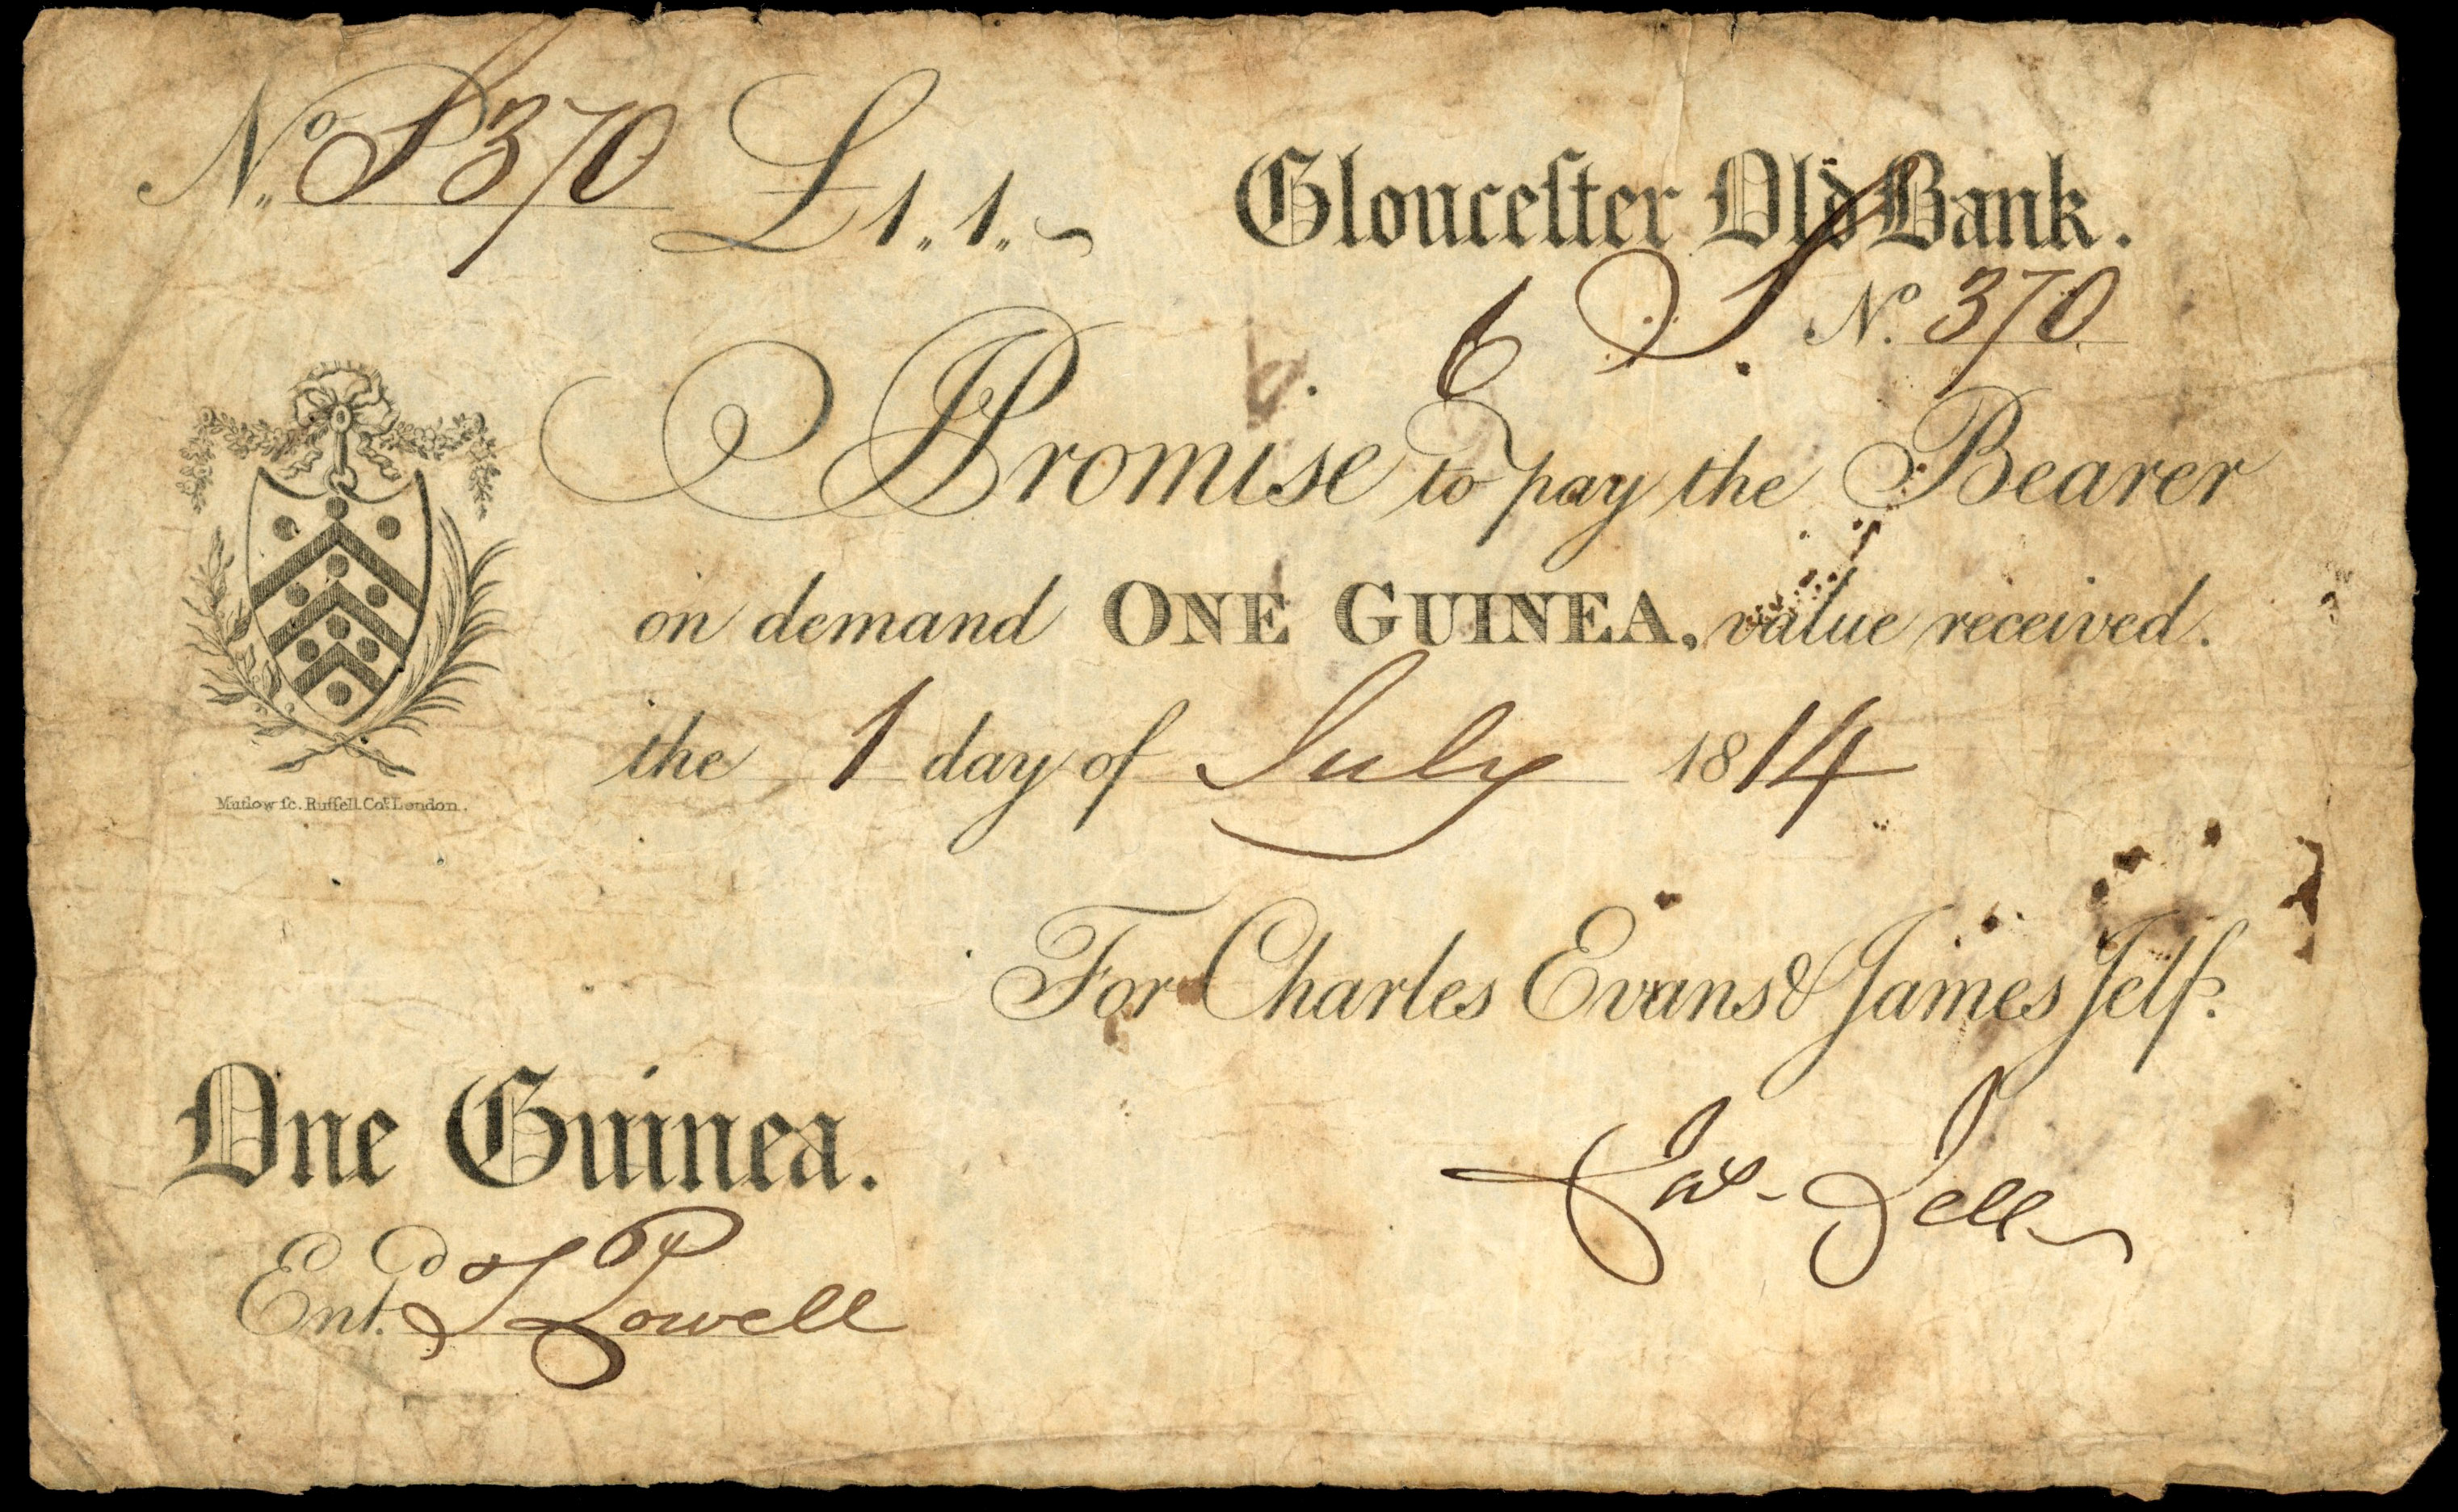 No. S 370 £1.. 1.. ~ Gloucester Old Bank.
6 S No. 370
I Promise to pay the Bearer
on demand ONE GUINEA, value received.
the 1 day of July 1814
Mutlow sc. Russell Co. London.
For Charles Evans & James Jelf.
One Guinea.
Jas. Jelf
Entd. T Powell